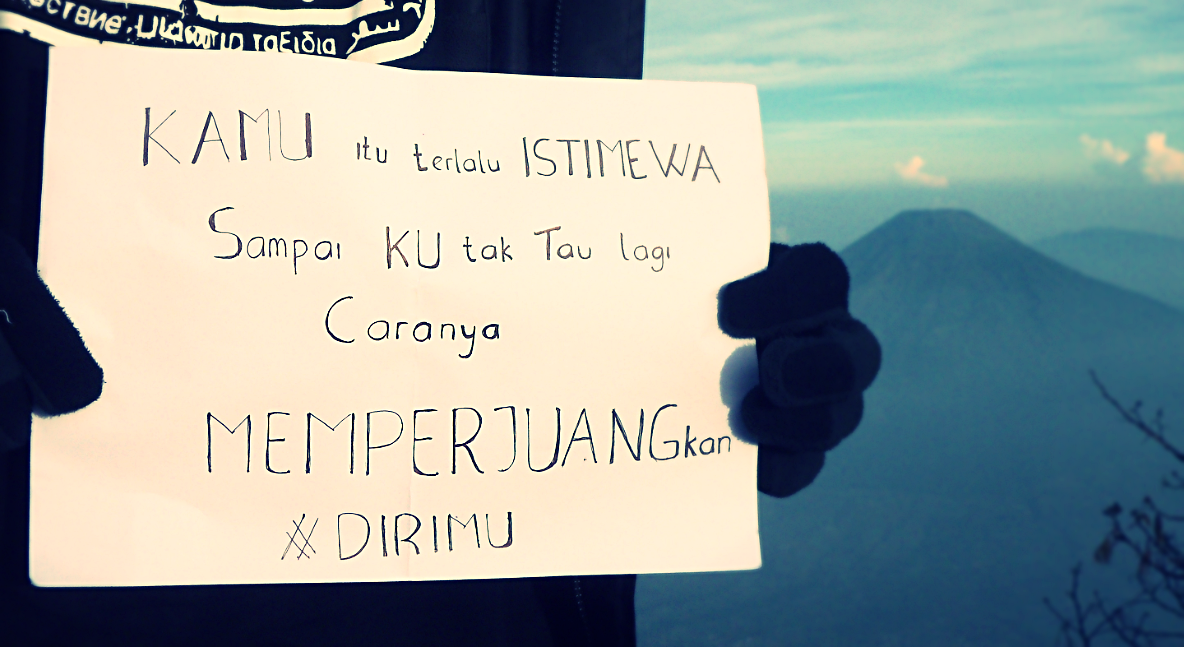 ταξίδια سفر
KAMU itu terlalu ISTIMEWA
Sampai KU tak Tau lagi
Caranya
MEMPERJUANGkan
# DIRIMU